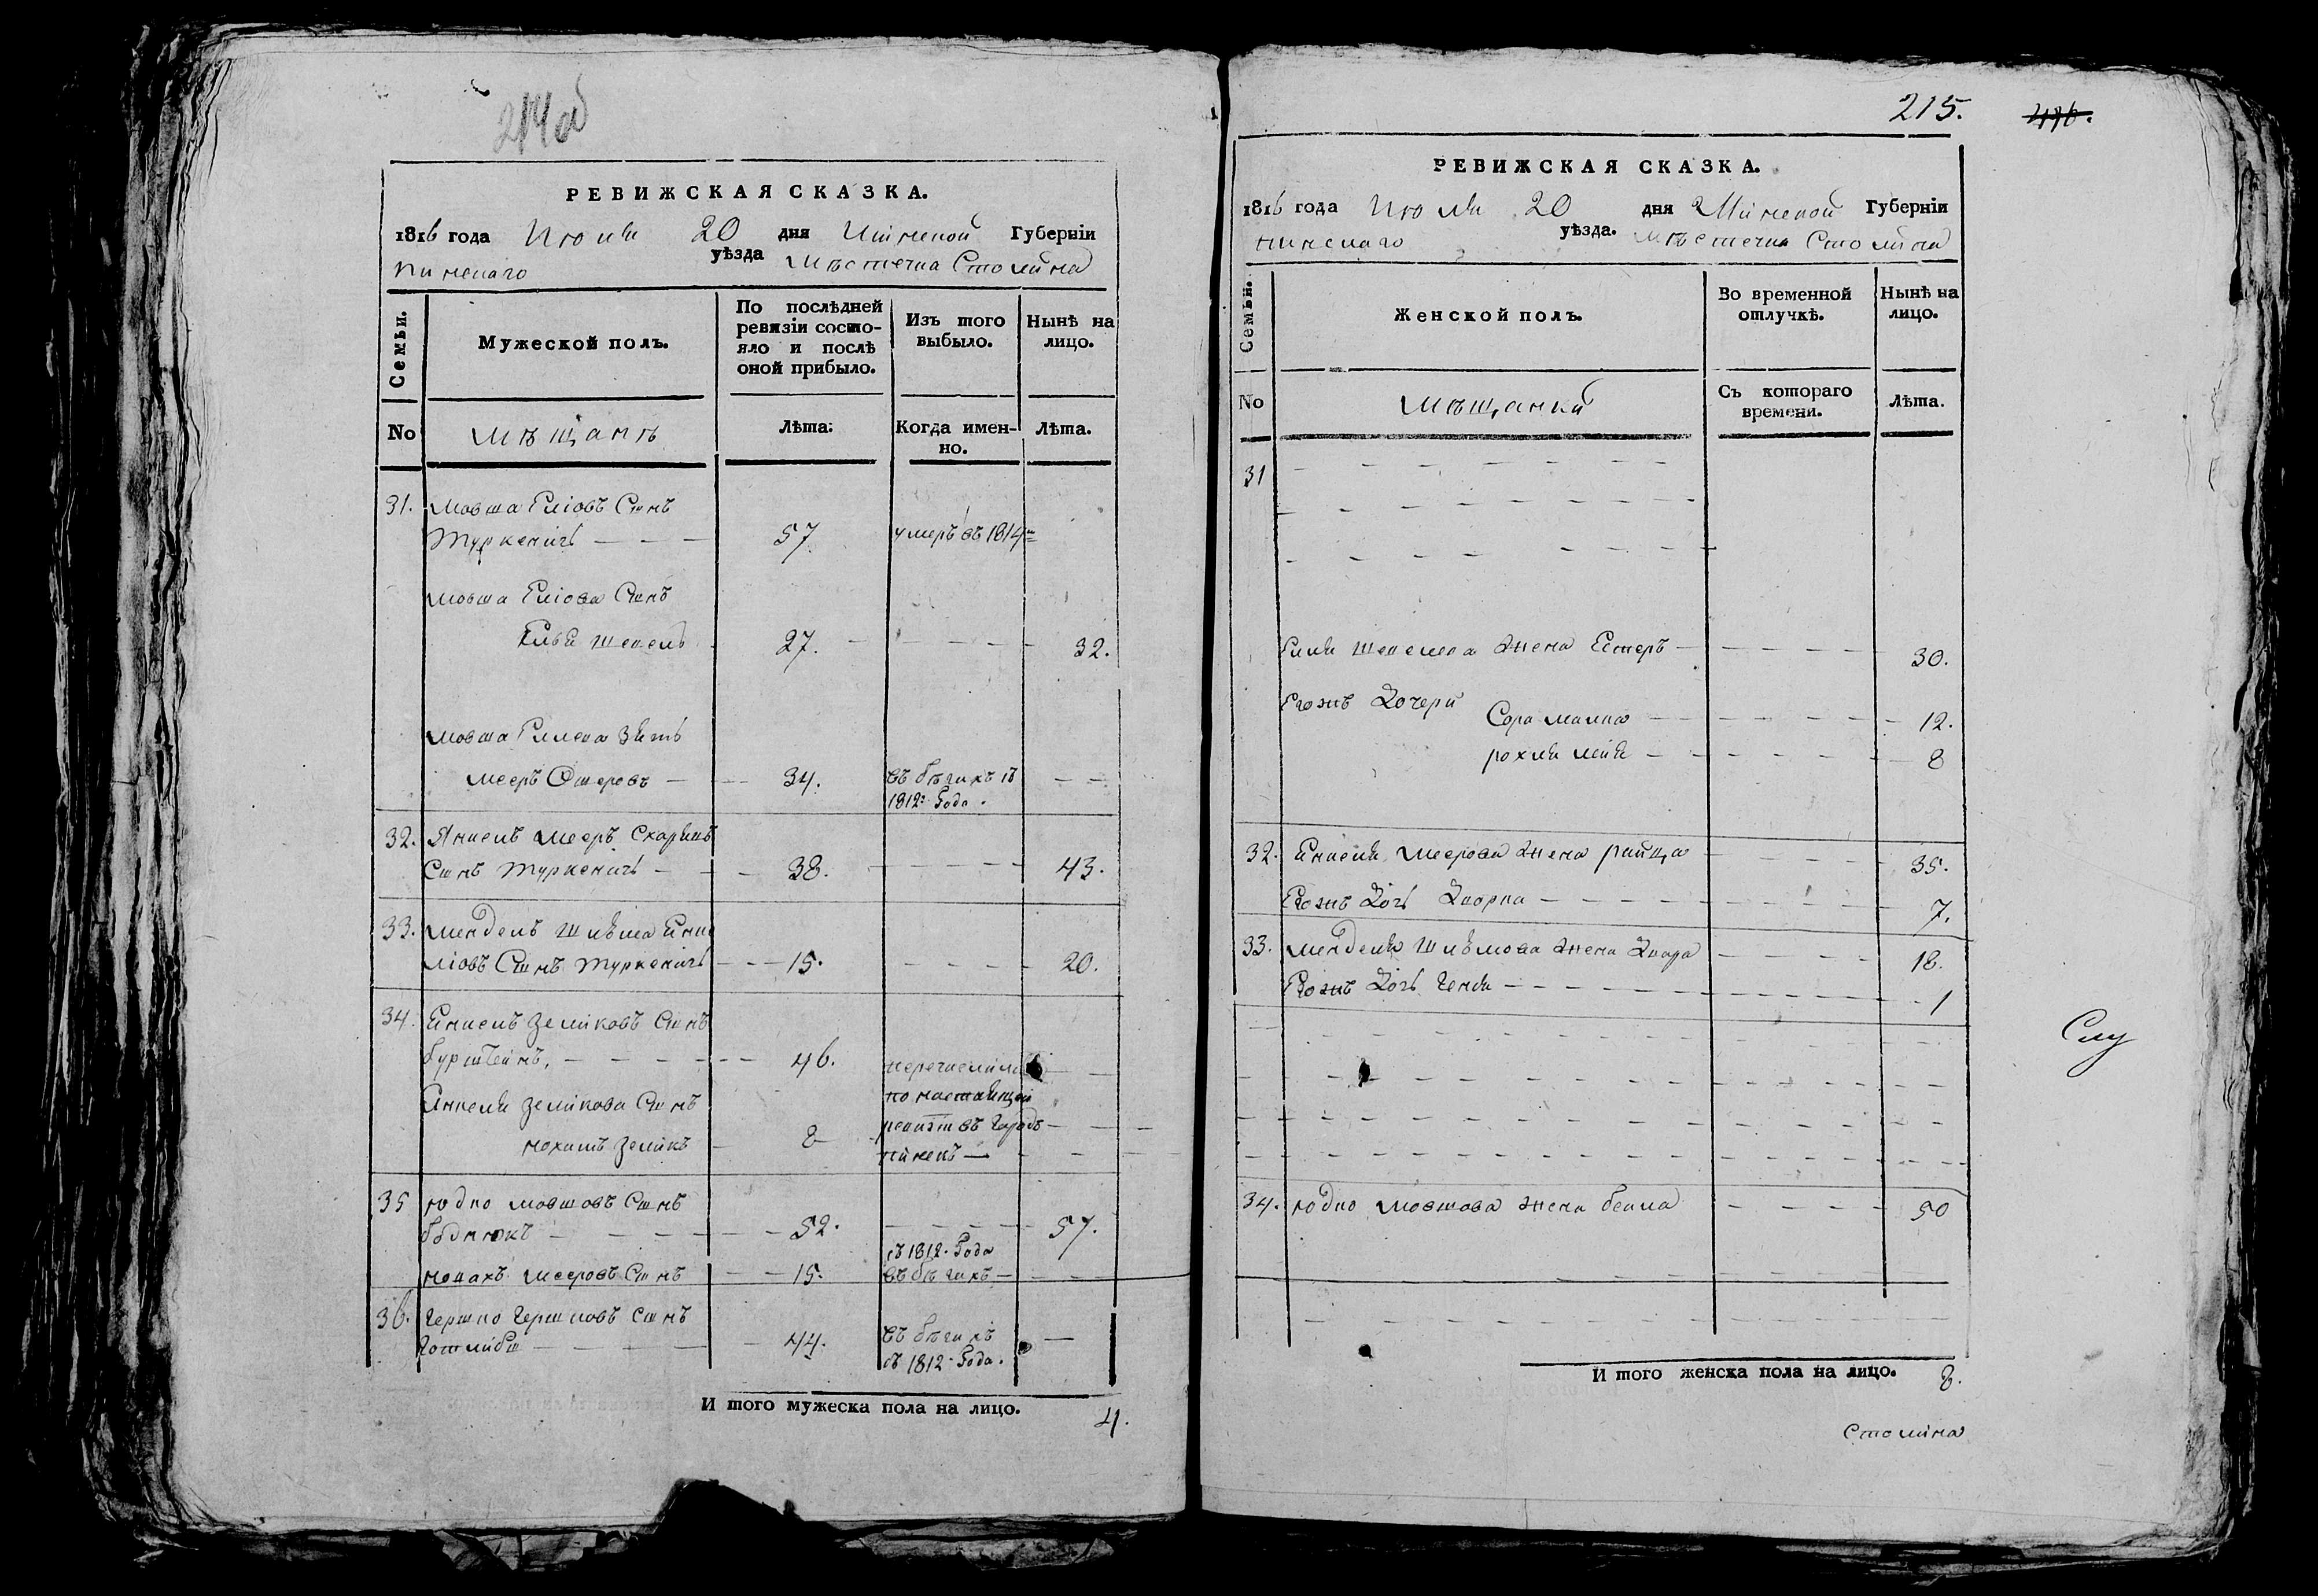 214об
РЕВИЖСКАЯ СКАЗКА.
1816 года Июля 20 дня Минской Губерніи
Пинскаго уѣзда Мѣстечка Столина
Семьи.
Мужеской полъ.
По послѣдней ревизіи состо-
яло и послѣ оной прибыло.
Изъ того выбыло.
Нынѣ на лицо.
No
Мѣщанъ
Лѣта:
Когда имен-
но.
Лѣта.
31. Мовша Еліовъ Сынъ
Туркеничъ — — — 57 умеръ въ 1814=
Мовша Еліова Сынъ
Шепель 27. — — — — 32.
Мовша зять
Мееръ Ошеровъ — — 34. въ бѣгахъ съ — —
1812: Года.
32. Янкель Мееръ
Сынъ Туркеничъ — — — 38. — — — — 43.
33. Мендель Шлѣма Янке
ліовъ Сынъ Туркеничъ — — — 15. — — — — 20.
34. Янкель Зеликовъ Сынъ
Бурштейнъ, — — — — — 46. перечислены —
Янкеля Зеликова Сынъ по настоящей
Зеликъ — 8 — въ Городъ — —
Пинскъ — — — —
35 Юдко Мовшовъ Сынъ
— — — — — 52. — — — — 57.
съ 1812. Года
Мееровъ Сынъ — — 15. въ бѣгахъ — — —
36. Гершко Гершковъ Сынъ
— — — — — 44. въ бѣгахъ —
съ 1812. Года.
И того мужеска пола на лицо. 4.
215.
РЕВИЖСКАЯ СКАЗКА.
1816 года Июля 20 дня Минской Губерніи
Пинскаго уѣзда. Мѣстечка Столина
Семьи.
Женской полъ.
Во временной отлучкѣ.
Нынѣ на лицо.
No
Мѣщанки
Съ котораго времени.
Лѣта.
31 — — — — — — —
— — — — — — — —
— — — — — — — —
Шепеля жена Естеръ — — — — — 30.
Егожъ Дочери
Сора Малка — — — — — — 12.
Рохля Лея — — — — — — 8
32. Янкеля Меерова жена Райца — — — — 35.
Егожъ Дочь Дворка — — — — — — — 7.
33. Менделя Шлѣмова жена — — — — 18.
Егожъ Дочь Геня — — — — — — — 1
34. Юдко Мовшова жена Бейла — — — — 50
И того женска пола на лицо. 8.
Столина
Слу